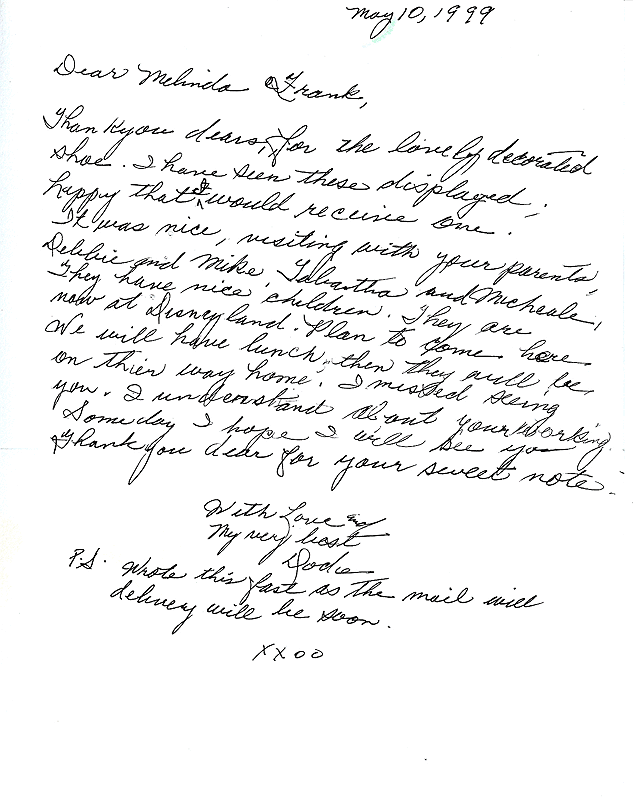 May 10, 1999
Dear Melinda & Frank,
Thank you dears, for the lovely decorated
shoe. I have seen these displayed,
happy that I would receive one.
It was nice, visiting with your parents,
Debbie and Mike, Tabartha and Micheale,
They have nice children. They are
now at Disneyland. Plan to come here
We will have lunch, then they will be
on thier way home. I missed seeing
you. I understand about your working.
Someday I hope I will see you
Thank you dear for your sweet note.
With Love and
My very best
Dodie
P.S. Wrote this fast as the mail will
delivery will be soon.
XXOO